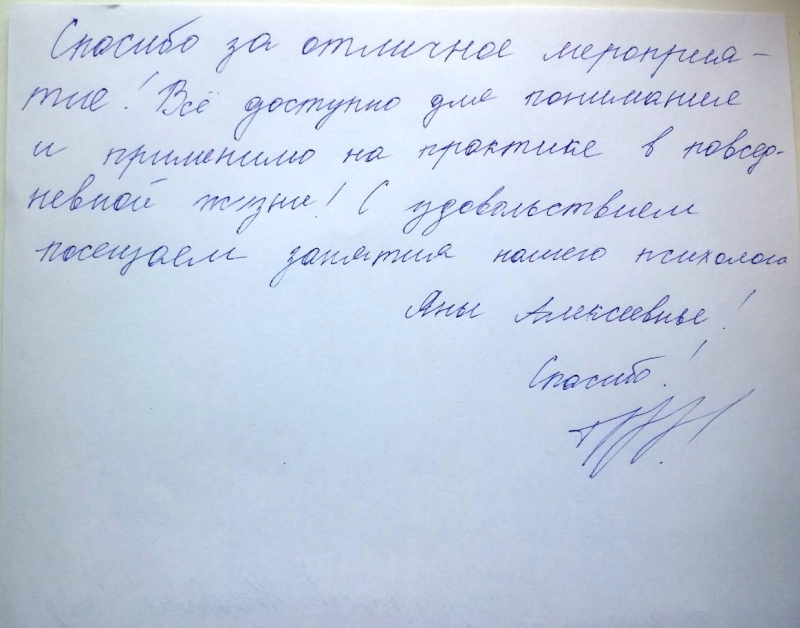 Спасибо за отличное мероприя-
тие! Всё доступно для понимания
и применимо на практике в повсед-
невной жизни! С удовольствием
посещаем занятия нашего психолога
Яны Алексеевны!
Спасибо!